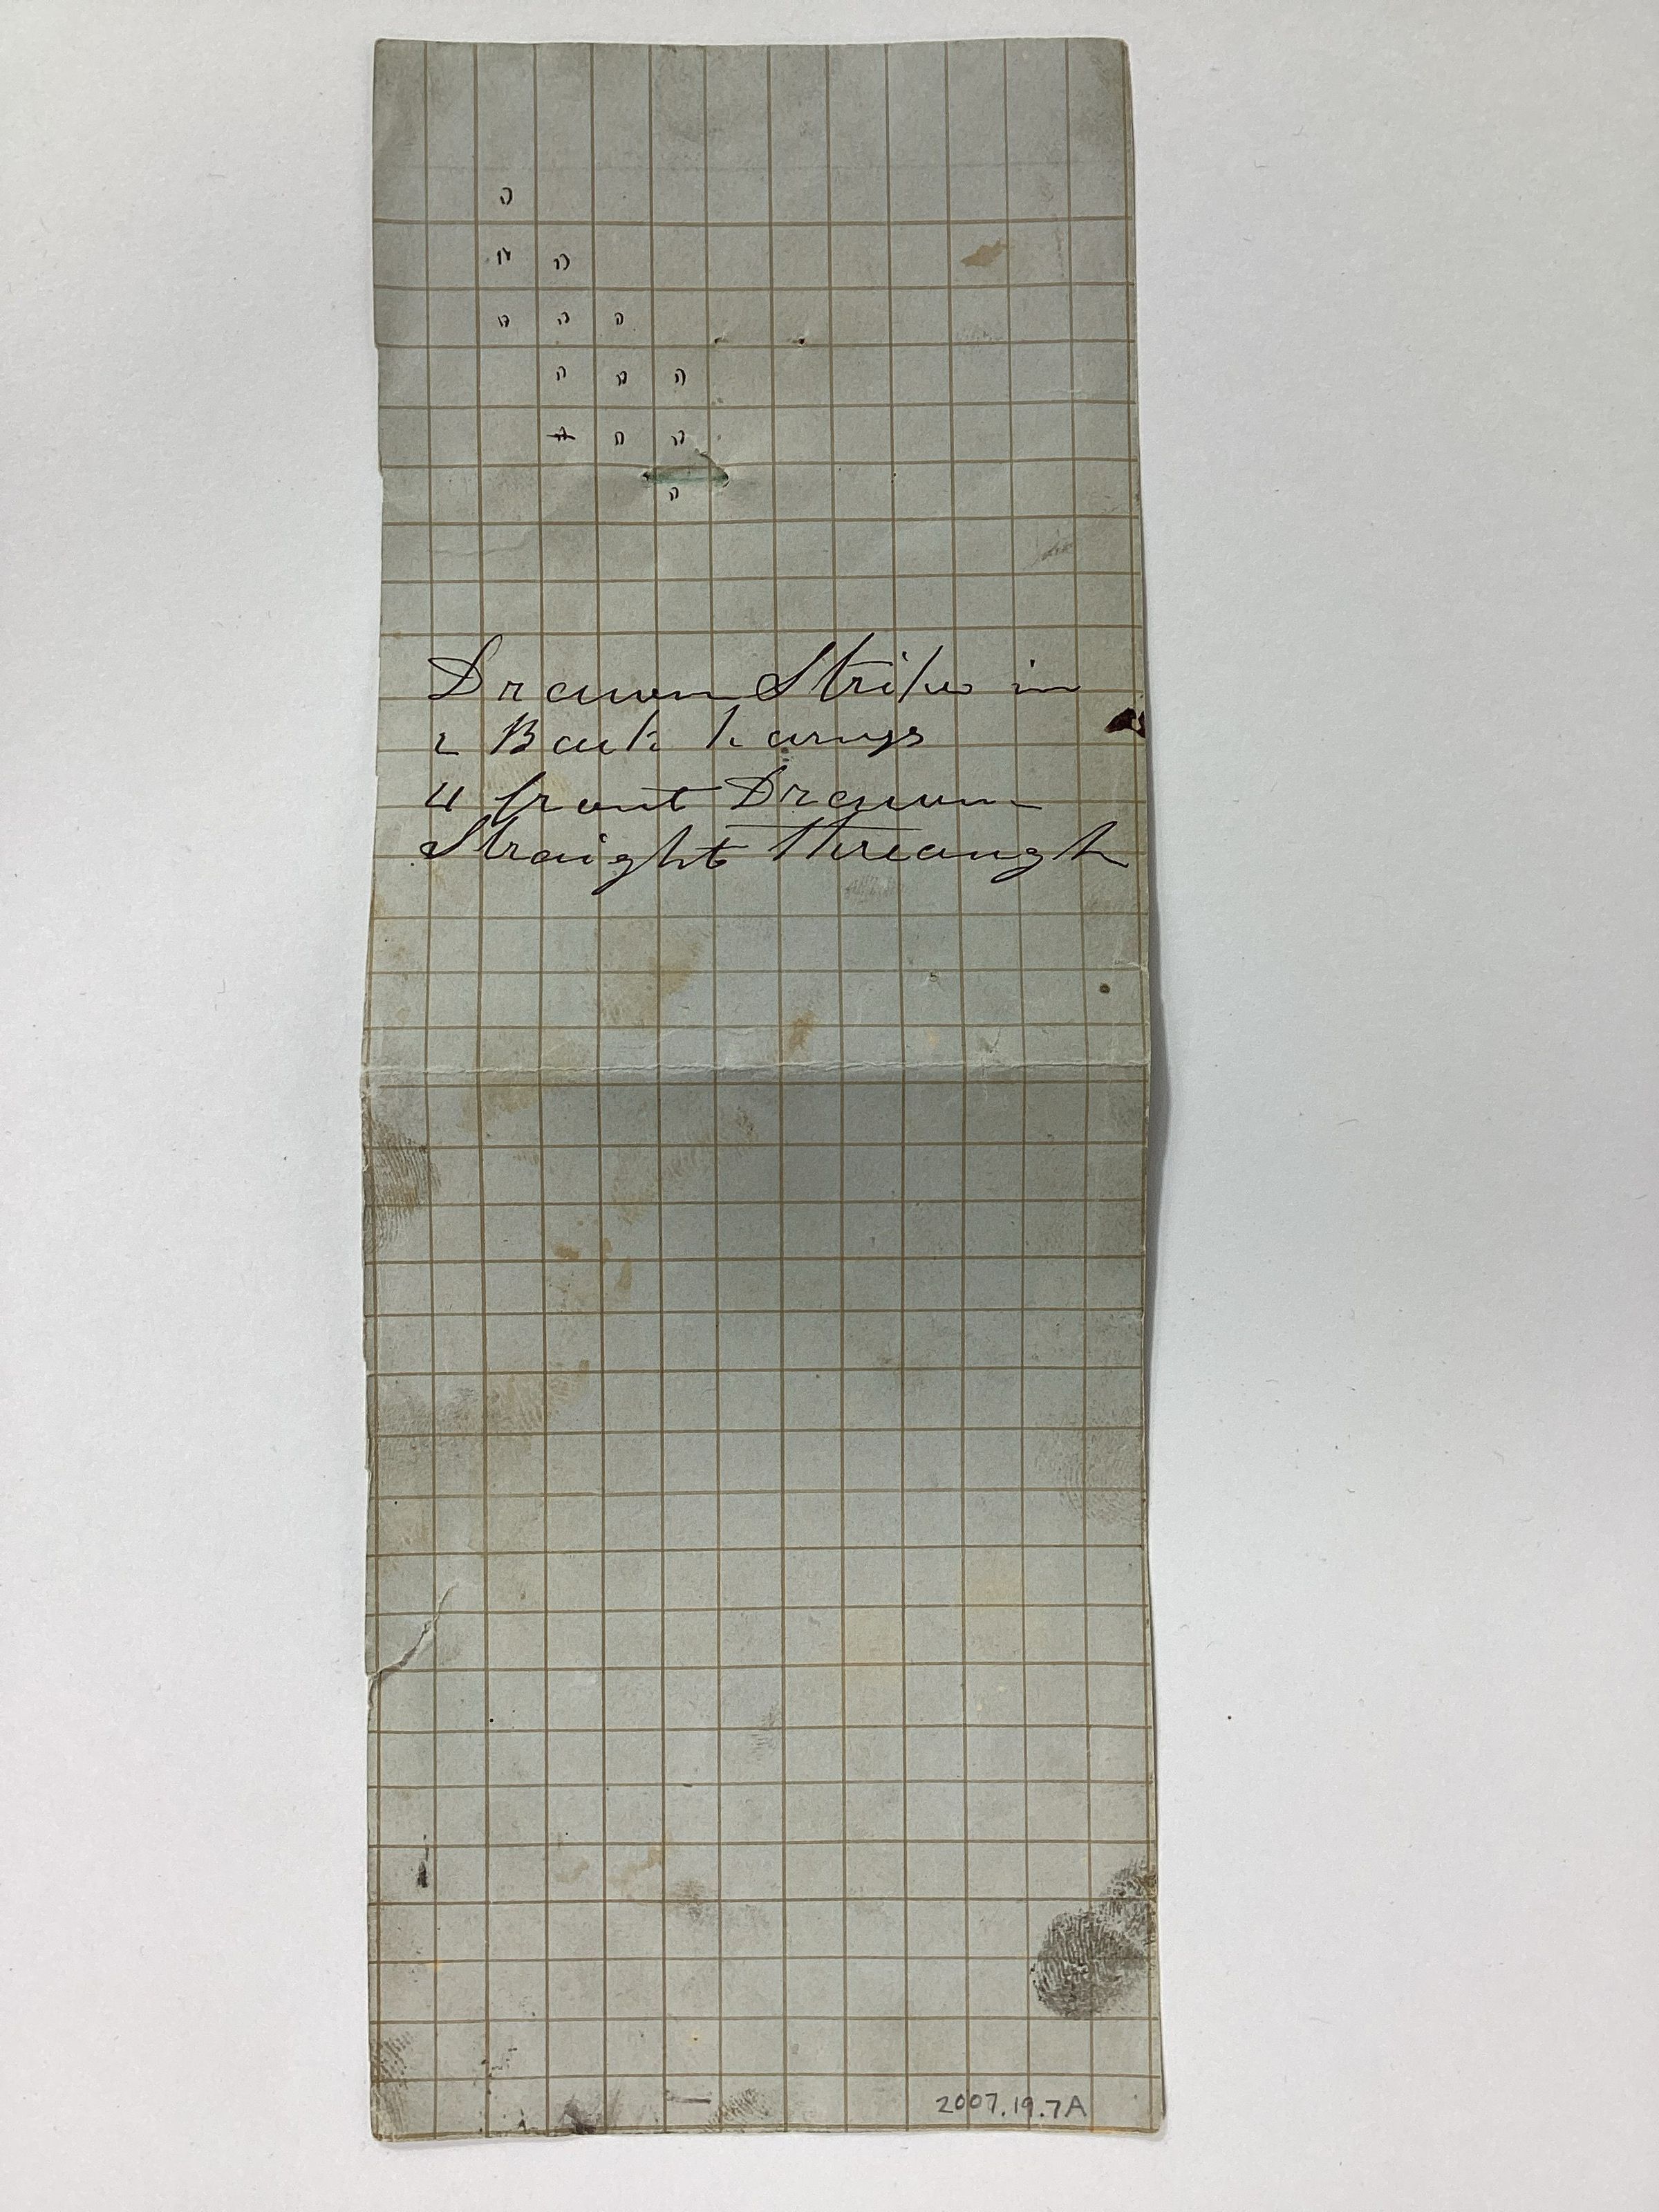 Drawn Strike in
2 Back
4 front Drawn
Straight Through
2007.19.7A